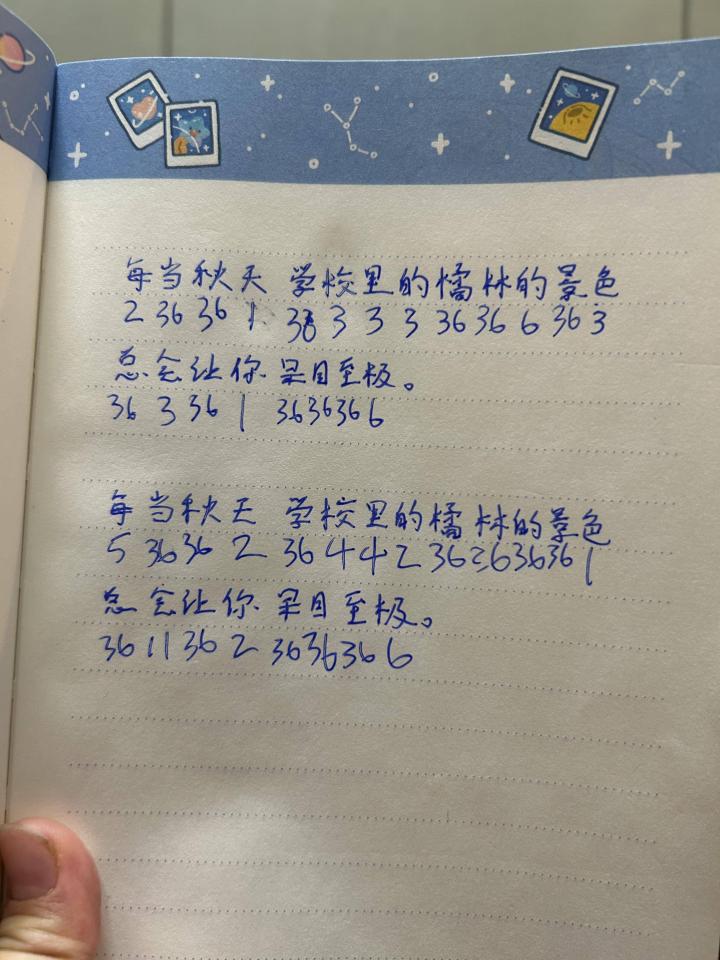 每当秋天 学校里的橘林的景色
2 36 36 1 38 3 3 3 36 36 6 36 3
总会让你 果目至极。
36 3 36 1 36 36 36 6
每当秋天 学校里的橘林的景色
5 36 36 2 36 4 4 2 36 26 36 36 1
总会让你 果目至极。
36 11 36 2 36 36 36 6